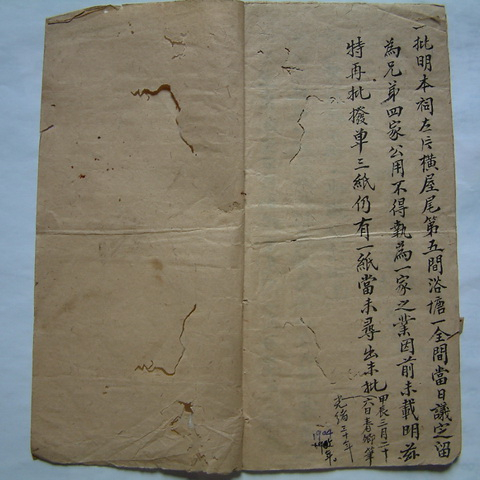 一批明本祠左片橫屋尾第五間浴塘一全間當日議定留
為兄弟四家公用不得執為一家之業因前未載明茲
特再批撥單三紙仍有一紙當未尋出未批
甲辰三月二十
六日春卿筆
光緒三十年